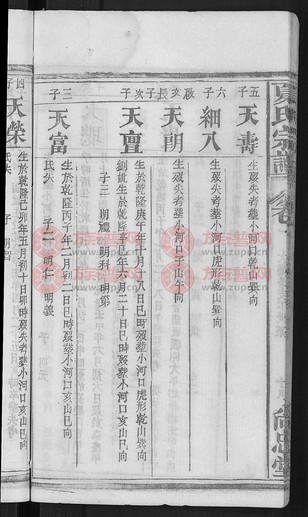 夏氏宗譜 卷
五子 天壽
生歿失考葬小河口乾山巽向
六子 細八
生歿失考葬小河口虎形乾山巽向
啟文長子 天朗
生歿失考葬小河口子山午向
次子 天亶
生於乾隆庚午年十月十八日巳時歿葬小河口虎形乾山巽向
劉氏生於乾隆辛未年六月二十日巳時歿葬小河口亥山巳向
子三 明禮 明科 明第
三子 天富
生於乾隆丙子年二月初二日巳時歿葬小河口亥山巳向
氏失 子二 明仁 明義
四子 天榮
生於乾隆己卯年五月初十日卯時歿失考葬小河口亥山巳向
氏失 子 明
尚忠堂
族譜網
www.zupu.cn